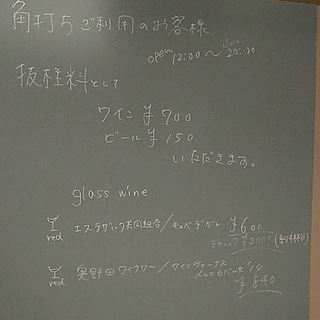 角打ちご利用のお客様
open 12:00 〜 close 20:30
抜栓料として
ワイン ¥700
ビール ¥150
いただきます。
glass wine
red エステザルグ共同組合/キュベデグル ¥600
デキャンタ¥2000
red 奥野田ワイナリー/ワインヴィーナス
¥ 880